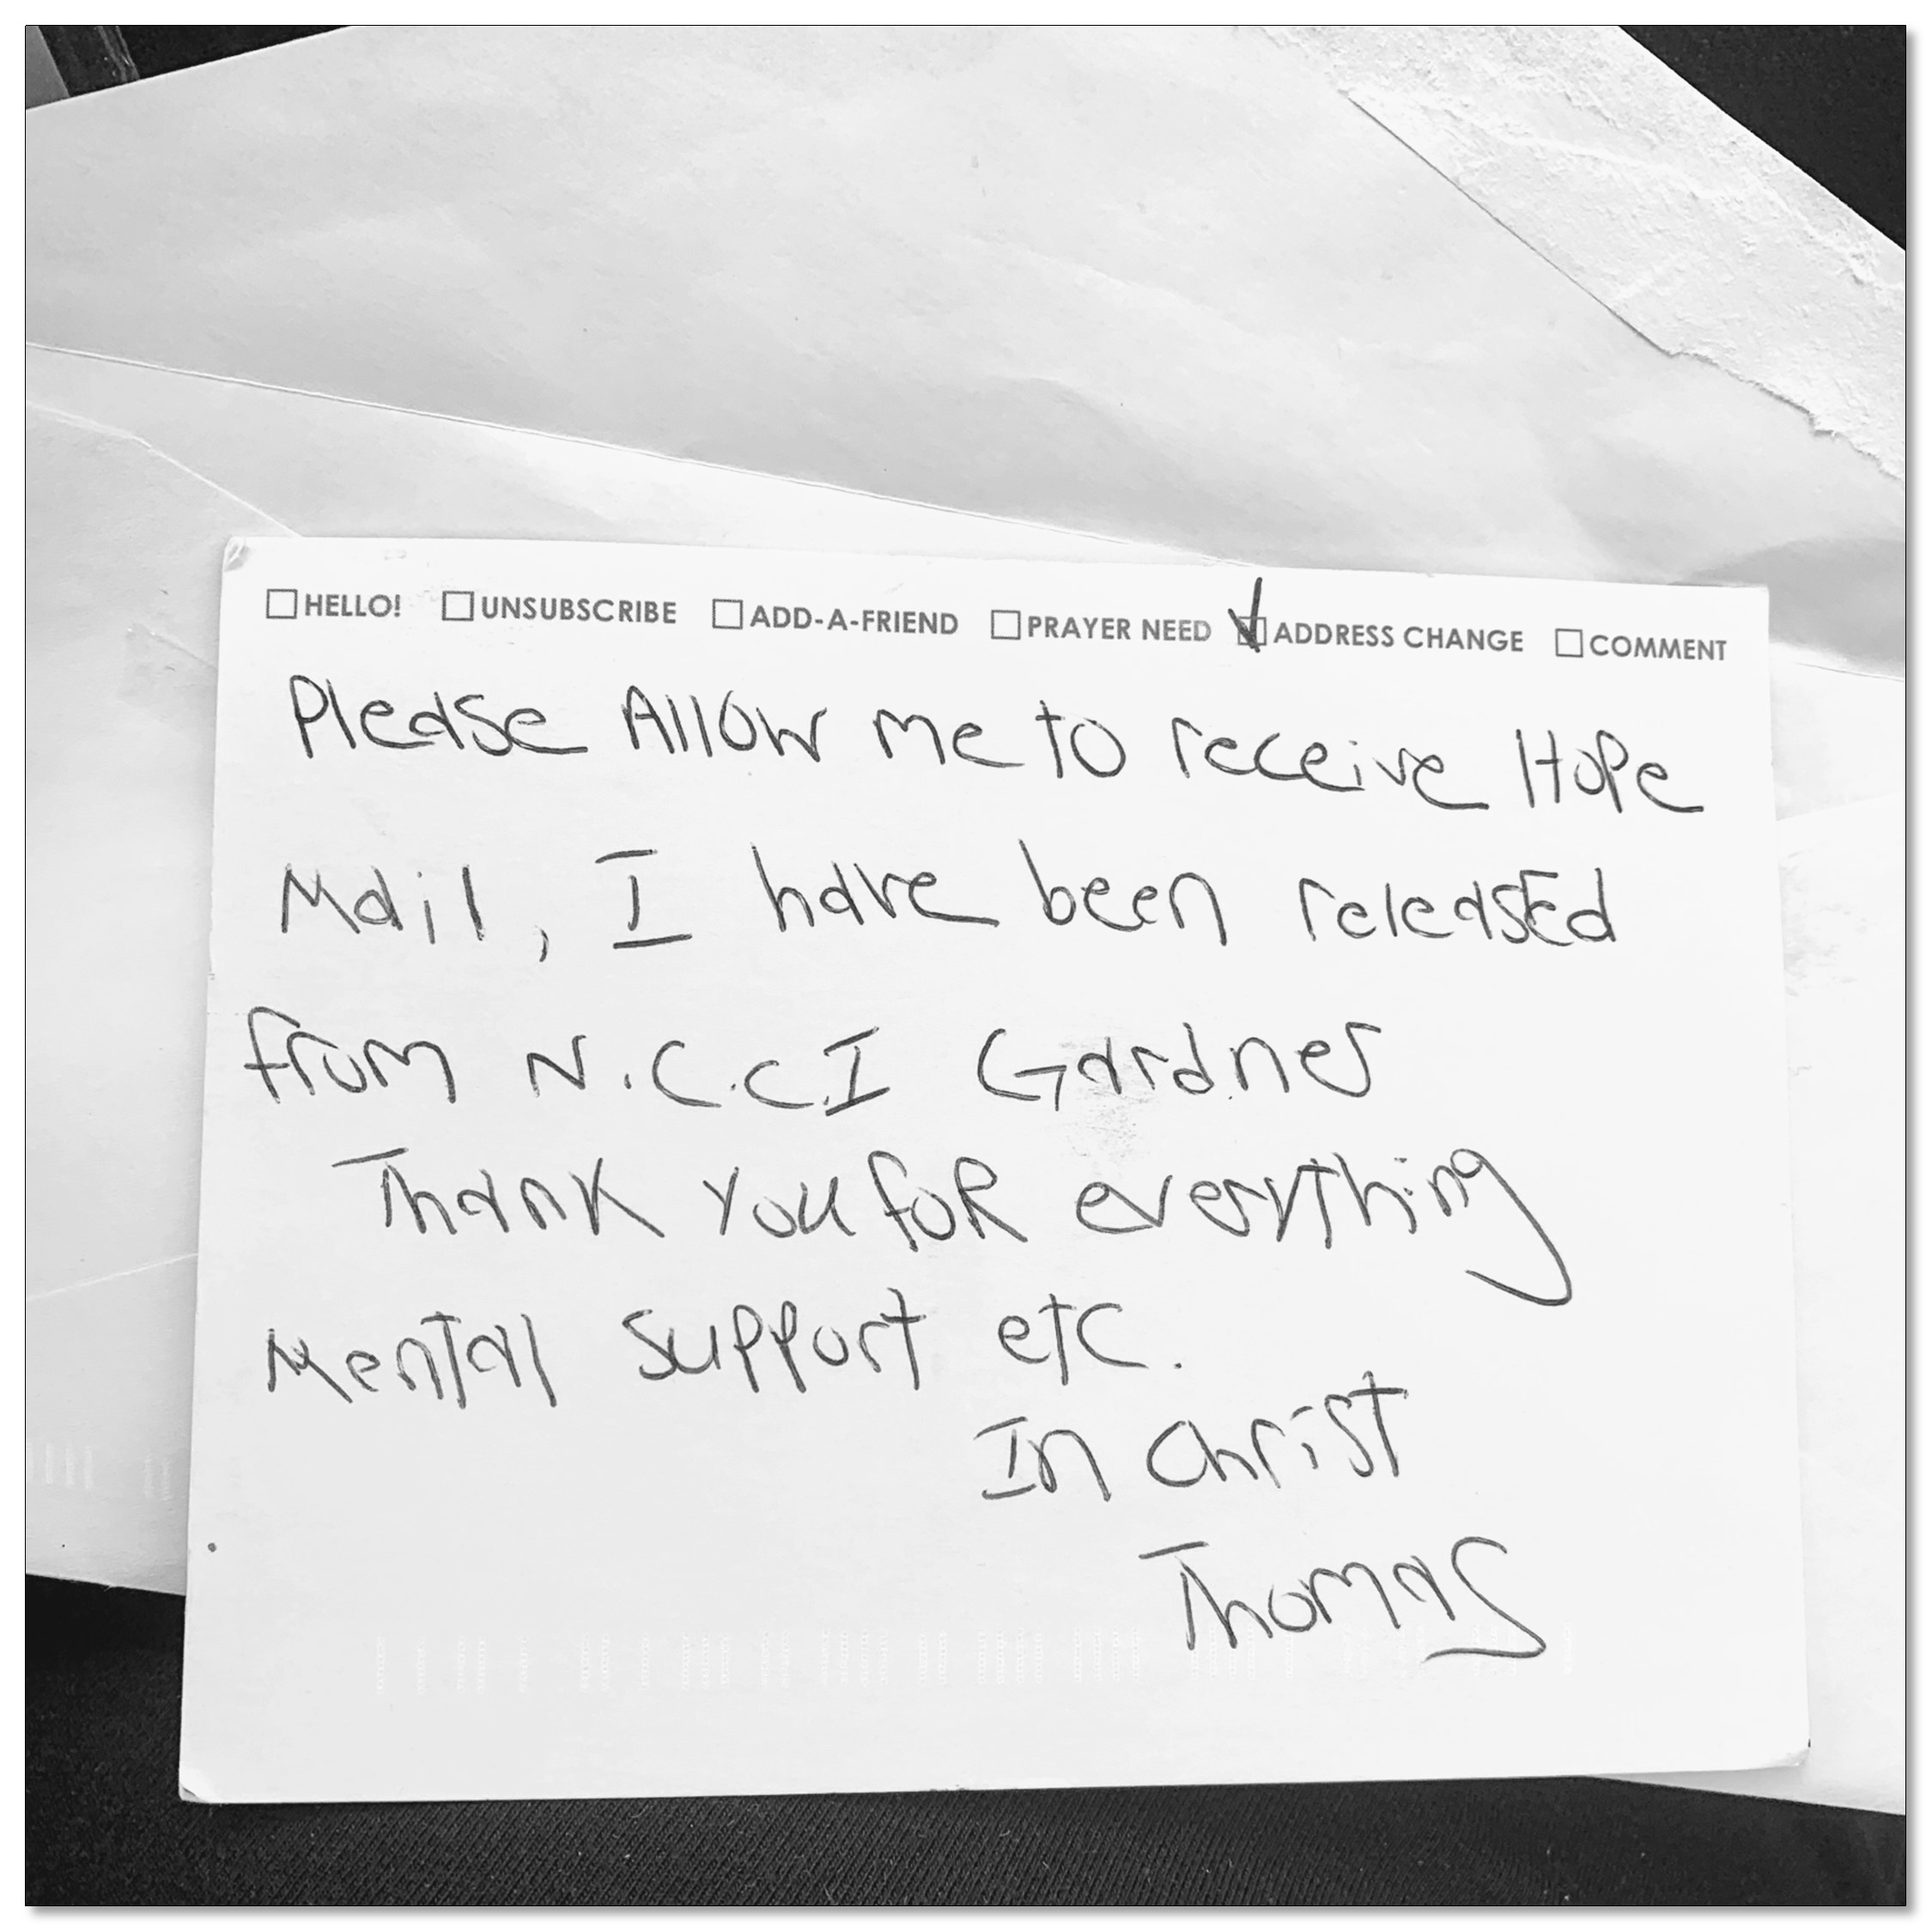 ☐ HELLO! ☐ UNSUBSCRIBE ☐ ADD-A-FRIEND ☐ PRAYER NEED ☑ ADDRESS CHANGE ☐ COMMENT
Please Allow me to receive Hope
Mail, I have been released
from N.C.C.I Gardner
Thank you for everything
Mental support etc.
In Christ
Thomas